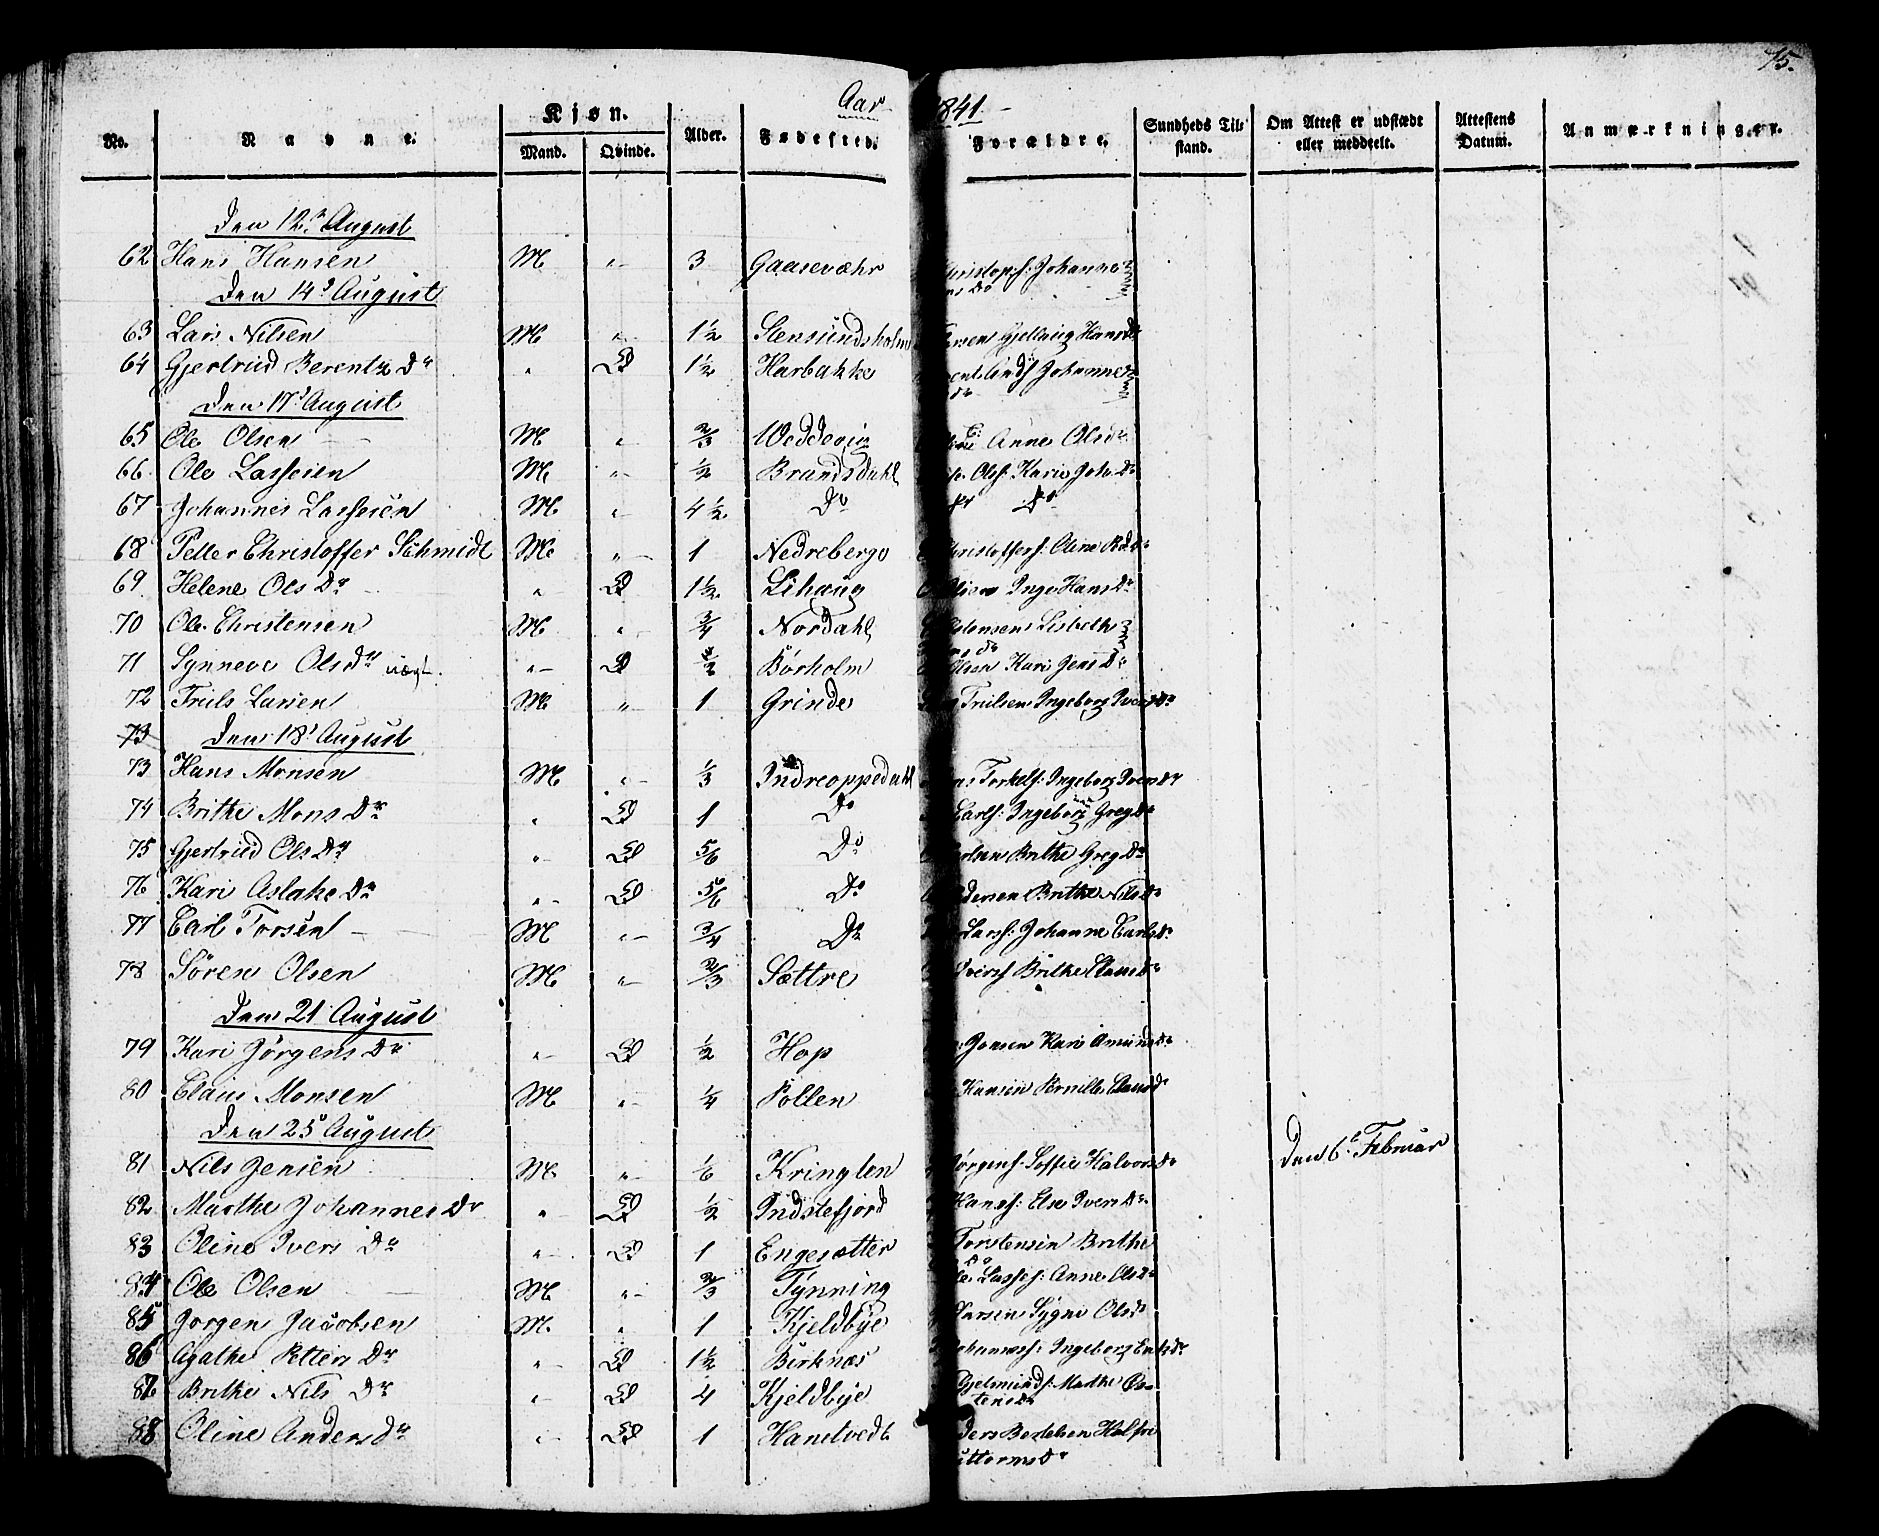 75.
Aar 1841
No. Navne. Kjøn. Mand. Qvinde. Alder. Fødested. Forældre. Sundheds Tilstand. Om Attest er udstædt eller meddeelt. Attestens Datum. Anmærkninger.
Den 12te August
62 Hans Hansen M " 3 Gaasevæhr Christoph: Johanne
Den 14de August
63 Lars Nilsen M " 1½ Stensundsholm Gjellaug Hansdr
64 Gjertrud Berents Dr " Q 1½ Harbakke Johanne
Den 17de August
65 Ole Olsen M " 2/3 Weddevig Anne Olsdr
66 Ole Lassesen M " ½ Brandsdahl Olss: Kari Joh. Dr
67 Johannes Lassesen M " 4½ Do Do
68 Petter Christoffer Schmidt M " 1 Nedreberge Christoffers: Oline
69 Helene Ols Dr " Q 1½ Lihaug Inge Hans Dr
70 Ole Christensen M " ¾ Nordahl Lisbeth
71 Synneve Olsdr uægte " Q ½ Börholm Olsen Kari Jens Dr
72 Truls Larsen M " 1 Grinde Trulsen Ingeborg Ivers Dr
73 Den 18de August
73 Hans Monsen M " 1/3 Indreoppedahl Torkels: Ingeborg Ivers Dr
74 Brithe Mons Dr " Q 1 Do Carls: Ingeborg Greg Dr
75 Gjertrud Ols Dr " Q 5/6 Do Brithe Greg Dr
76 Kari Aslaks Dr " Q 5/6 Do Brithe Nils Dr
77 Carl Torsen M " ¾ Do Lars: Johanne Carls Dr
78 Sören Olsen M " 2/3 Sættre Brithe Claus Dr
Den 21 August
79 Kari Jörgens Dr " Q ½ Hop Jonsen Kari Amunds Dr
80 Claus Monsen M " ¼ Pollen Hansen Pernille Clausdr
Den 25de August
81 Nils Jensen M " 1/6 Kringlen Jörgens: Soffie Halvors Dr Den 6te Februar
82 Marthe Johannes Dr " Q ½ Indstefjord Hans: Else Ivers Dr
83 Oline Ivers Dr " Q 1 Engesætter Torstensen Brithe
84 Ole Olsen M " 2/3 Tynning Lasses: Anne Ols Dr
85 Jørgen Jacobsen M " 1 Kjeldbye Larsen Sygni Olsdr
86 Agathe Petters Dr " Q 1½ Birknæs Johanness: Ingeborg
87 Brithe Nils Dr " Q 4 Kjeldbye Marthe
88 Oline Anders dr " Q 1 Hanstvedt